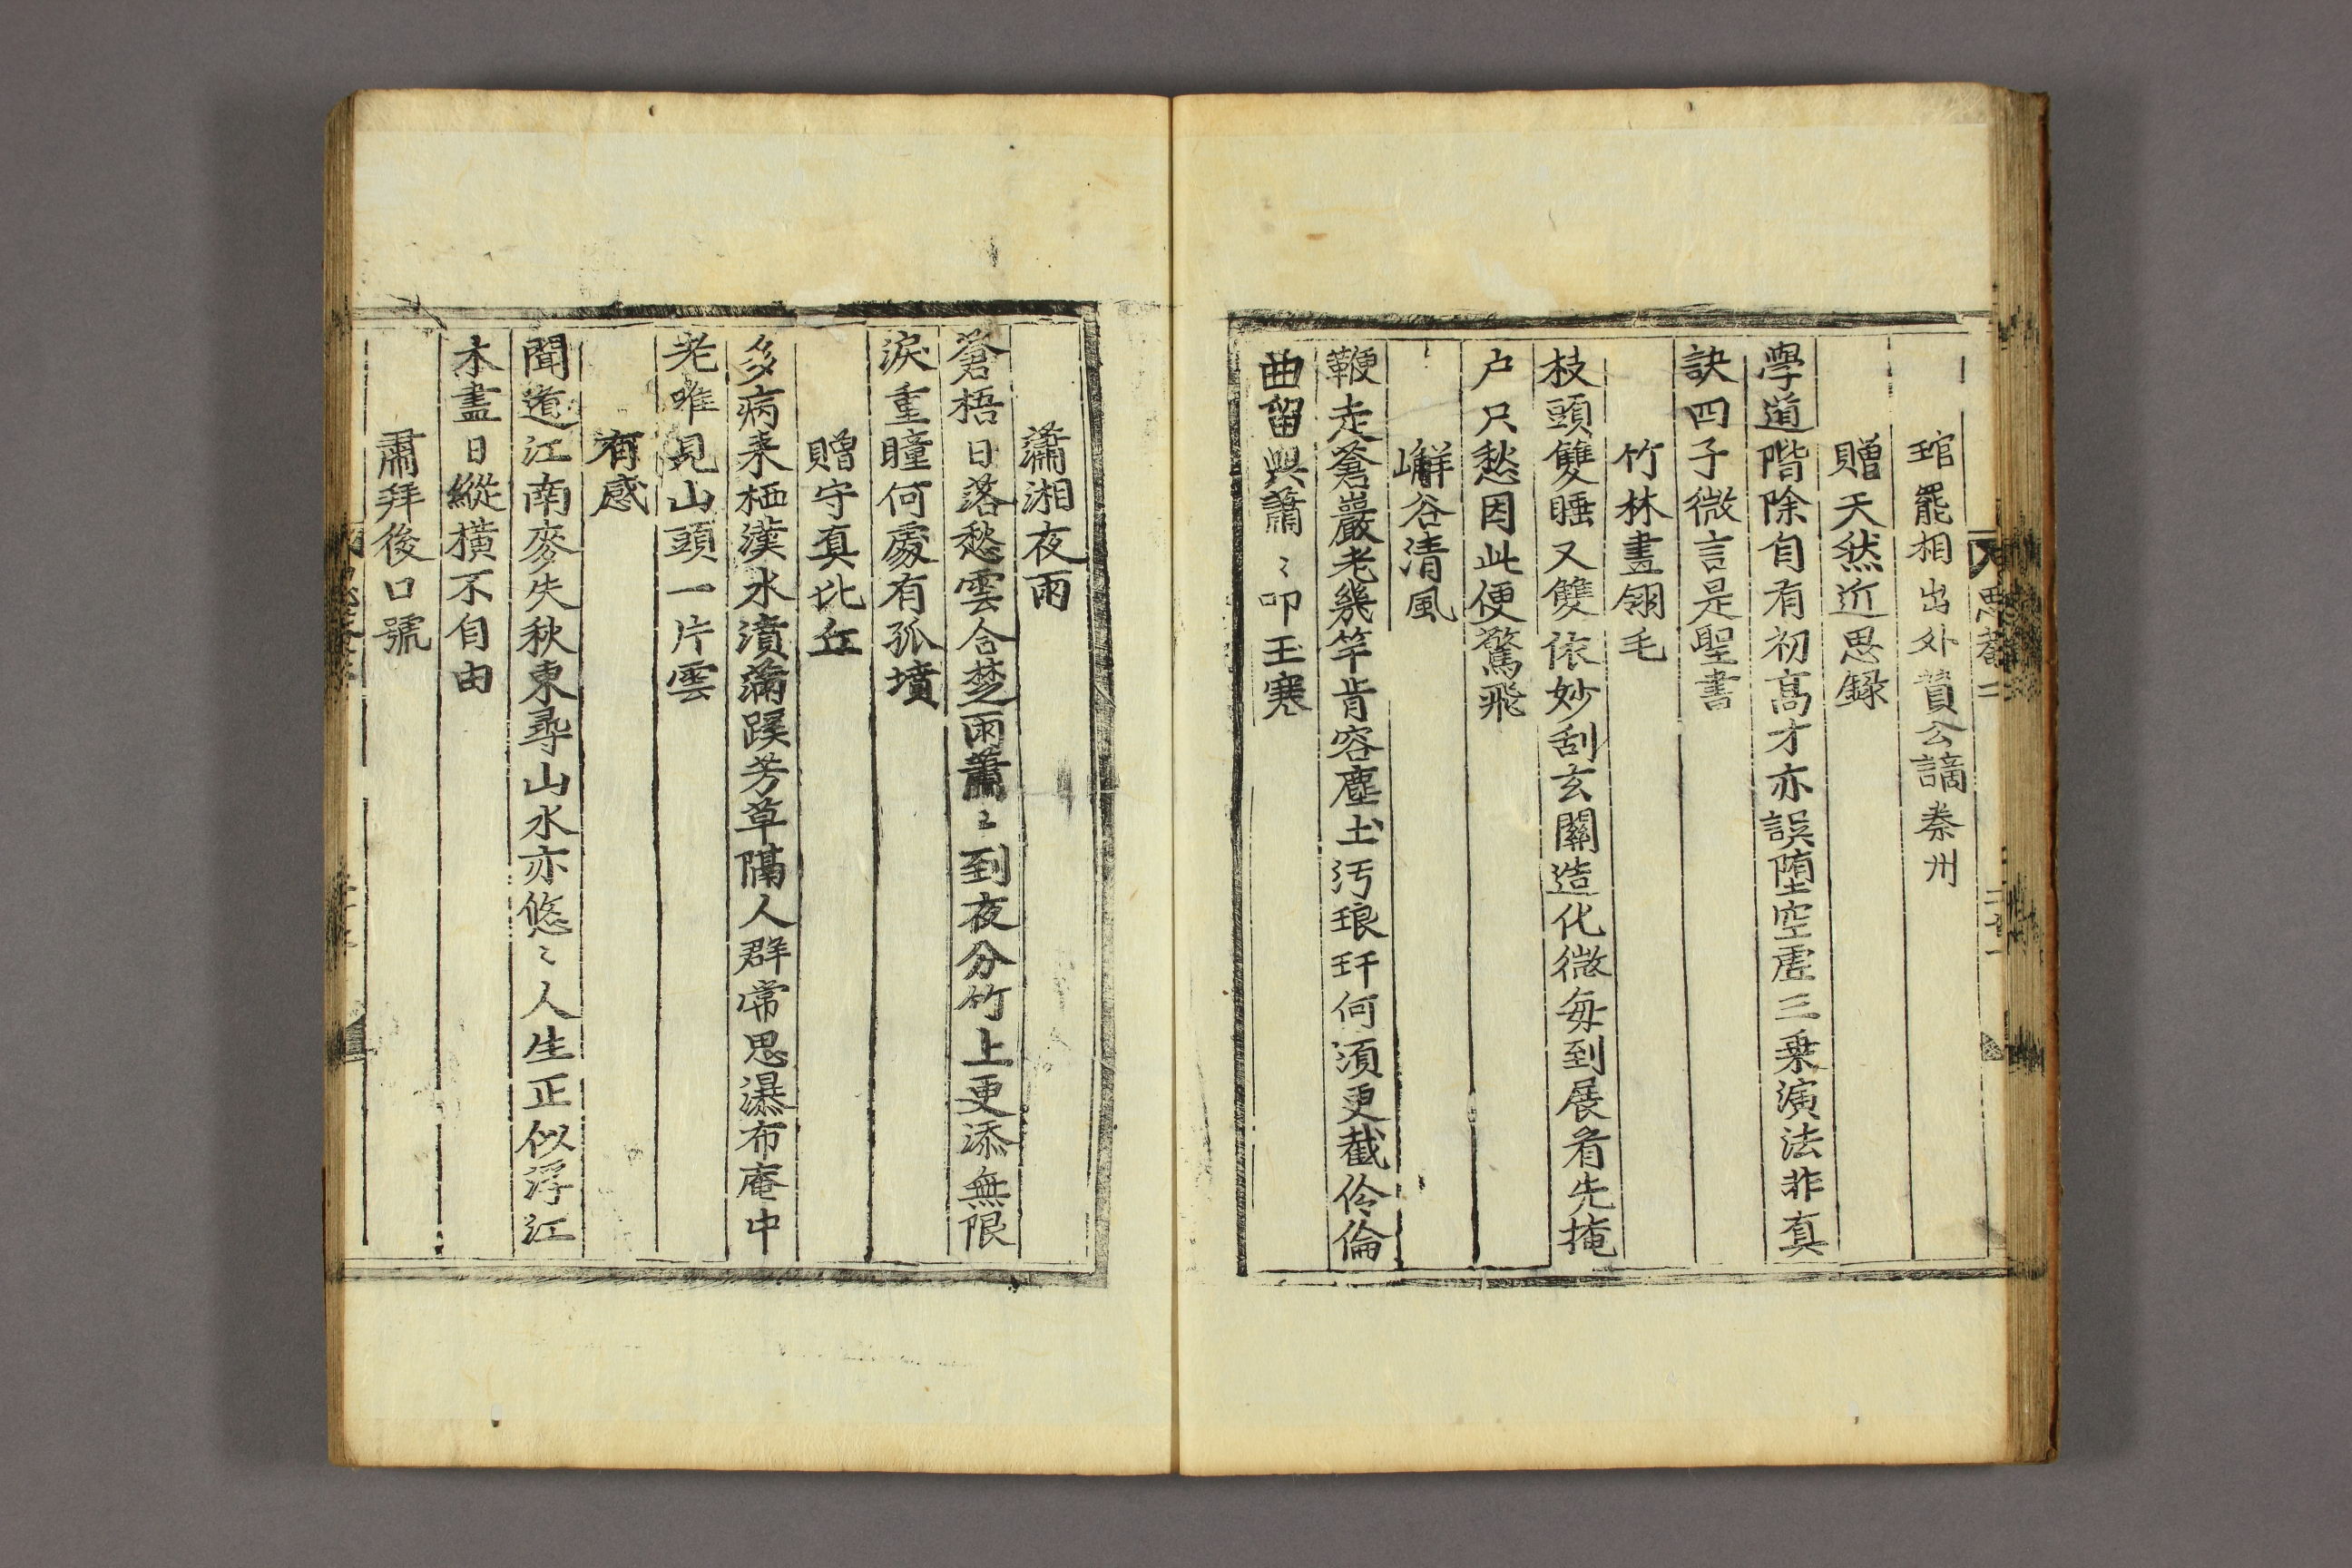 琯罷相出外贊公謫秦州
贈天然近思録
學道階除自有初高才亦誤堕空虛三乗演法非真
訣四子微言是聖書
竹林畫翎毛
枝頭雙睡又雙依妙刮玄關造化微每到展看先掩
户只愁因此便驚飛
嶰谷清風
鞭走蒼巖老幾竿肯容塵土汚琅玕何湏更截伶倫
曲留與簫〻叩玉寒
瀟湘夜雨
蒼梧日落愁雲合楚雨蕭〻到夜分竹上更添無限
淚重瞳何處有孤墳
贈守真比丘
多病来栖漢水濆滿蹊芳草隔人群常思瀑布庵中
老唯見山頭一片雲
有感
聞道江南麥失秋東尋山水亦悠〻人生正似浮江
木盡日縱橫不自由
肅拜後口號